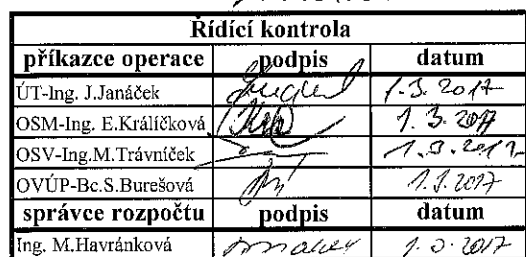 Řídící kontrola
příkazce operace podpis datum
ÚT-Ing. J.Janáček 1.3.2017
OSM-Ing. E.Králíčková 1. 3. 2017
OSV-Ing.M.Trávníček
OVÚP-Bc.S.Burešová 1.3.2017
správce rozpočtu podpis datum
Ing. M.Havránková